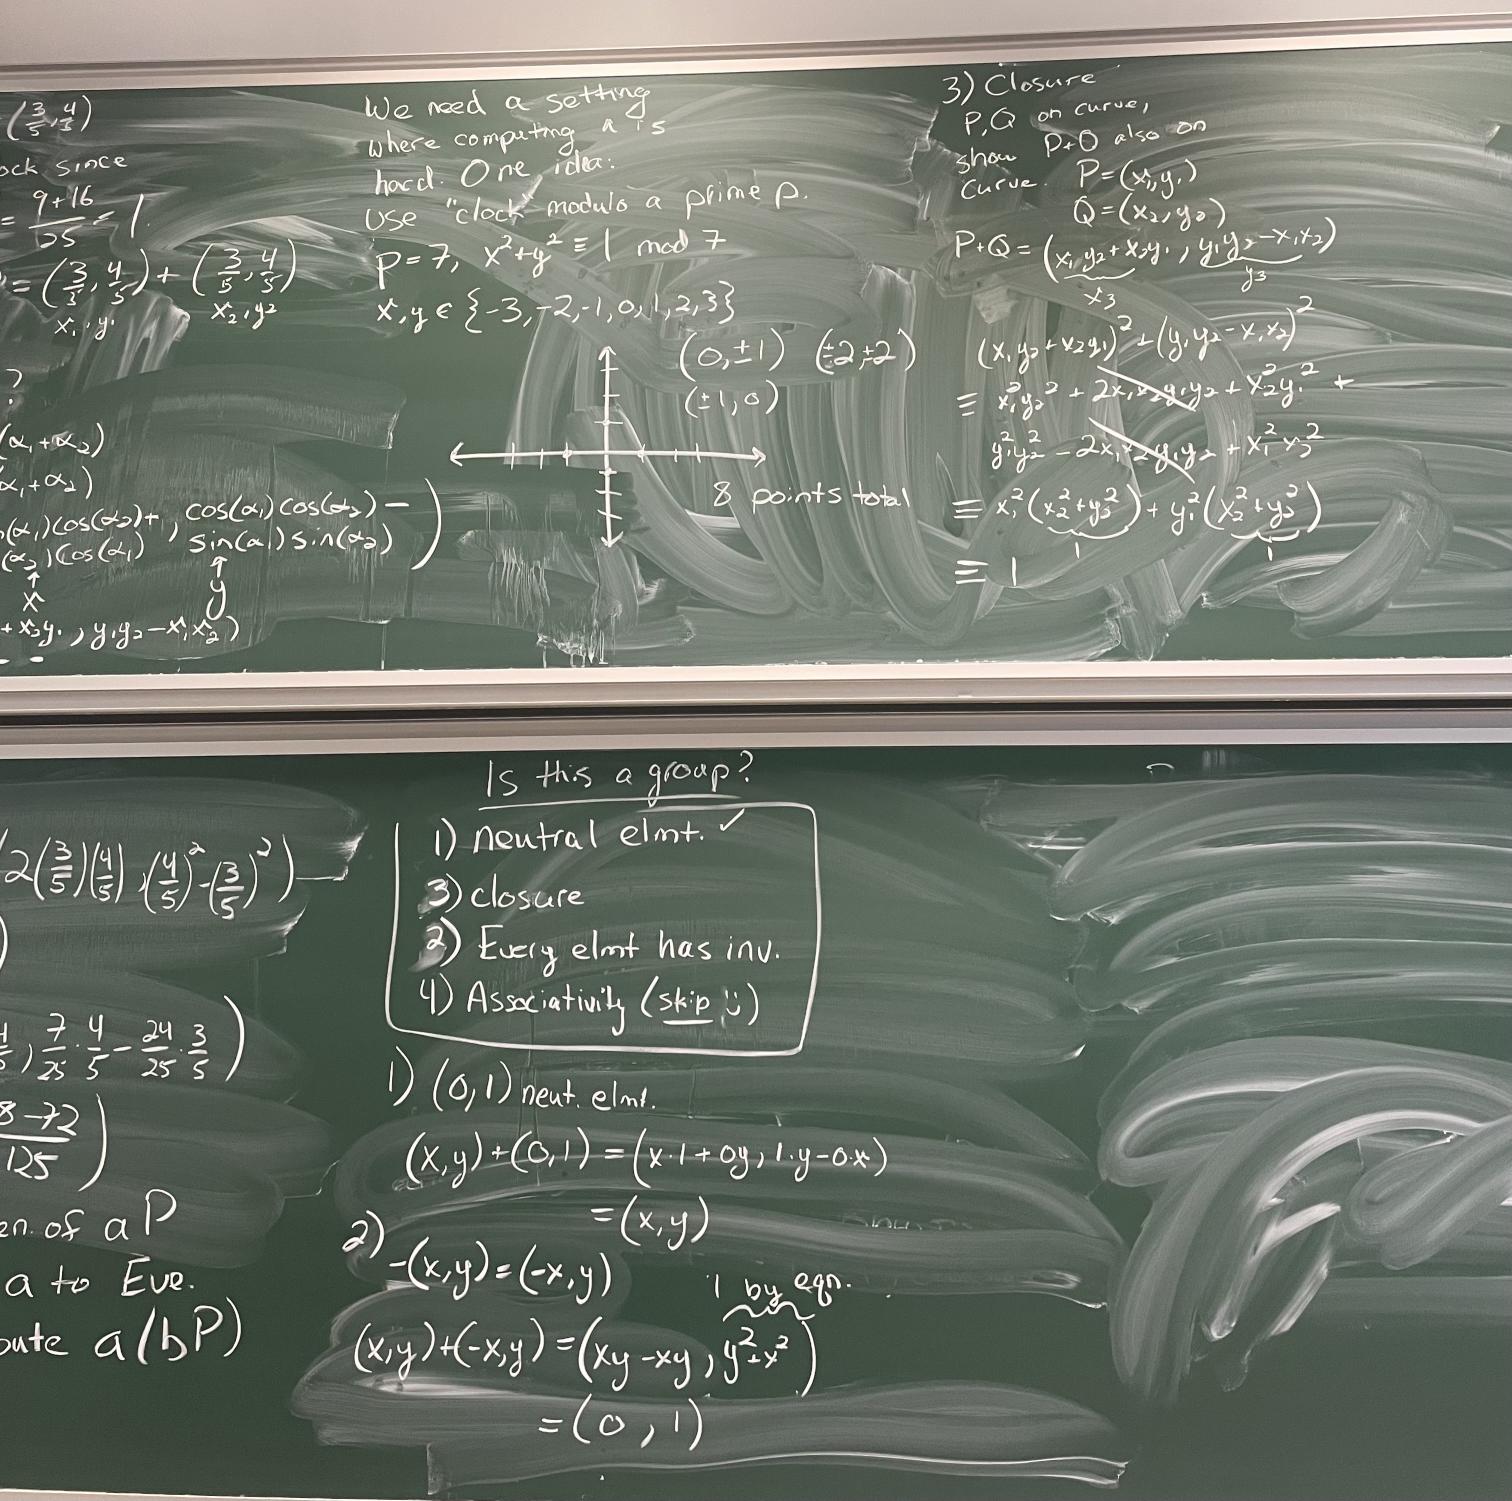 (3/5, 4/5)
ock since
= 9+16/25 = 1.
= (3/5, 4/5) + (3/5, 4/5)
x₁, y₁ x₂, y₂
?
(α₁+α₂)
α₁+α₂)
(α₁)cos(α₂)+, cos(α₁)cos(α₂) −
(α₂)cos(α₁) sin(α₁)sin(α₂))
↑ ↑
x y
+ x₂y₁, y₁y₂−x₁x₂)
We need a setting
where computing a is
hard. One idea:
Use "clock" modulo a prime p.
P=7, x²+y² ≡ 1 mod 7
x,y ∈ {-3,-2,-1,0,1,2,3}
(0,±1) (±2,±2)
(±1,0)
8 points total
3) Closure
P,Q on curve,
show P+Q also on
curve. P=(x₁,y₁)
Q=(x₂,y₂)
P+Q = (x₁y₂+x₂y₁, y₁y₂−x₁x₂)
x₃ y₃
(x₁y₂+x₂y₁)²+(y₁y₂−x₁x₂)²
≡ x₁²y₂² + 2x₁x₂y₁y₂ + x₂²y₁² +
y₁²y₂² − 2x₁x₂y₁y₂ + x₁²x₂²
≡ x₁²(x₂²+y₂²) + y₁²(x₂²+y₂²)
1 1
≡ 1
2(3/5)(4/5), (4/5)²−(3/5)²)
)
4/5, 7/25 · 4/5 − 24/25 · 3/5)
8−72/125)
en. of a P
a to Eve.
pute a(bP)
Is this a group?
1) neutral elmt. ✓
3) closure
2) Every elmt has inv.
4) Associativity (skip :))
1) (0,1) neut. elmt.
(x,y)+(0,1) = (x·1+0y, 1·y−0·x)
= (x,y)
2) −(x,y) = (−x,y)
1 by eqn.
(x,y)+(−x,y) = (xy−xy, y²+x²)
= (0, 1)